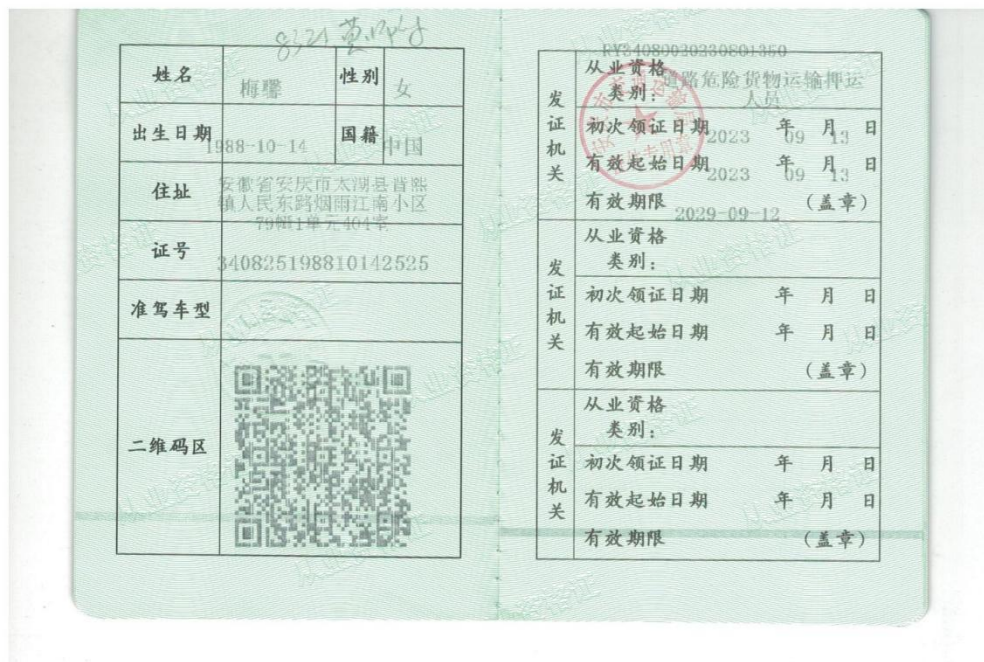 8321
姓名 梅馨 性别 女
出生日期 1988-10-14 国籍 中国
住址 安徽省安庆市太湖县晋熙
镇人民东路烟雨江南小区
79幢1单元404室
证号 340825198810142525
准驾车型
二维码区
RY34080020230801350
发证机关
从业资格 道路危险货物运输押运
类别： 人员
初次领证日期 2023 年 09 月 13 日
有效起始日期 2023 年 09 月 13 日
有效期限 2029-09-12 (盖章)
发证机关
从业资格
类别：
初次领证日期 年 月 日
有效起始日期 年 月 日
有效期限 (盖章)
发证机关
从业资格
类别：
初次领证日期 年 月 日
有效起始日期 年 月 日
有效期限 (盖章)
从业资格证